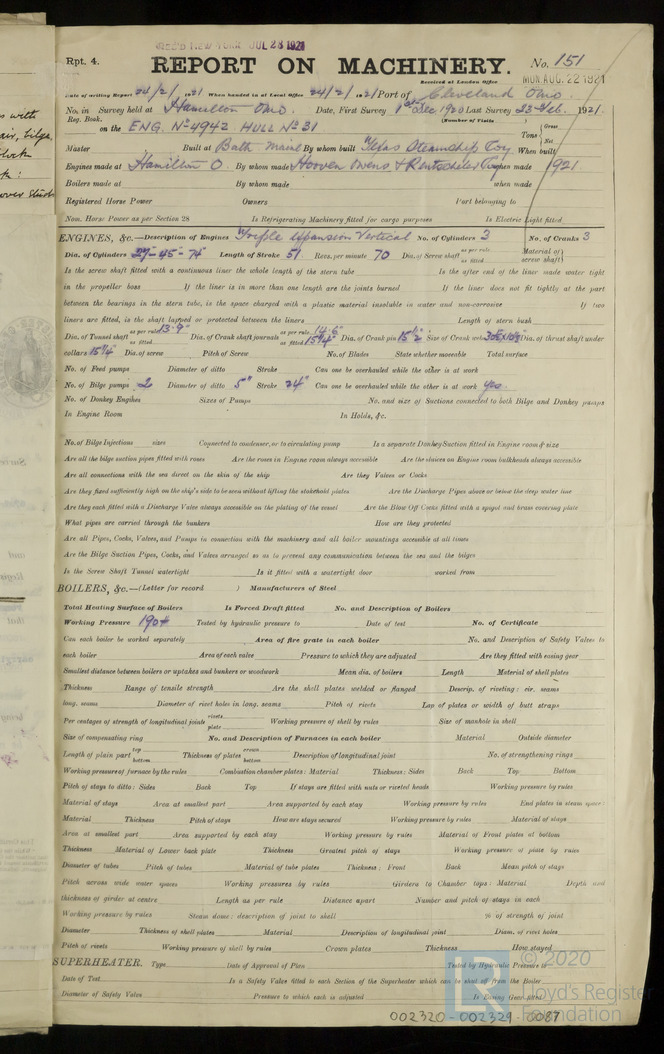 REC'D NEW YORK JUL 28 1921
Rpt. 4.
REPORT ON MACHINERY.
No. 151
Received at London Office MON. AUG. 22 1921
Date of writing Report 24/2/1921 When handed in at Local Office 24/2/1921 Port of Cleveland Ohio.
No. in Survey held at Hamilton Ohio. Date, First Survey 1st Dec 1920 Last Survey 23rd Feb. 1921
Reg. Book. (Number of Visits
on the ENG. No 4942 HULL No 31 Tons { Gross Net
Master Built at Bath Maine By whom built Texas Steamship Coy When built
Engines made at Hamilton O. By whom made Hooven Owens & Rentschler Coy when made 1921
Boilers made at By whom made when made
Registered Horse Power Owners Port belonging to
Nom. Horse Power as per Section 28 Is Refrigerating Machinery fitted for cargo purposes Is Electric Light fitted
ENGINES, &c.—Description of Engines Triple Expansion Vertical No. of Cylinders 3 No. of Cranks 3
Dia. of Cylinders 27"-45"-74" Length of Stroke 51 Revs. per minute 70 Dia. of Screw shaft as per rule as fitted Material of screw shaft
Is the screw shaft fitted with a continuous liner the whole length of the stern tube Is the after end of the liner made water tight
in the propeller boss If the liner is in more than one length are the joints burned If the liner does not fit tightly at the part
between the bearings in the stern tube, is the space charged with a plastic material insoluble in water and non-corrosive If two
liners are fitted, is the shaft lapped or protected between the liners Length of stern bush
Dia. of Tunnel shaft as per rule 13.9" as fitted Dia. of Crank shaft journals as per rule 14.6" as fitted 15 1/4" Dia. of Crank pin 15 1/2" Size of Crank webs Dia. of thrust shaft under
collars 15 1/4" Dia. of screw Pitch of Screw No. of Blades State whether moveable Total surface
No. of Feed pumps Diameter of ditto Stroke Can one be overhauled while the other is at work
No. of Bilge pumps 2 Diameter of ditto 5" Stroke 24" Can one be overhauled while the other is at work yes.
No. of Donkey Engines Sizes of Pumps No. and size of Suctions connected to both Bilge and Donkey pumps
In Engine Room In Holds, &c.
No. of Bilge Injections sizes Connected to condenser, or to circulating pump Is a separate Donkey Suction fitted in Engine room & size
Are all the bilge suction pipes fitted with roses Are the roses in Engine room always accessible Are the sluices on Engine room bulkheads always accessible
Are all connections with the sea direct on the skin of the ship Are they Valves or Cocks
Are they fixed sufficiently high on the ship's side to be seen without lifting the stokehold plates Are the Discharge Pipes above or below the deep water line
Are they each fitted with a Discharge Valve always accessible on the plating of the vessel Are the Blow Off Cocks fitted with a spigot and brass covering plate
What pipes are carried through the bunkers How are they protected
Are all Pipes, Cocks, Valves, and Pumps in connection with the machinery and all boiler mountings accessible at all times
Are the Bilge Suction Pipes, Cocks, and Valves arranged so as to prevent any communication between the sea and the bilges
Is the Screw Shaft Tunnel watertight Is it fitted with a watertight door worked from
BOILERS, &c.—(Letter for record ) Manufacturers of Steel
Total Heating Surface of Boilers Is Forced Draft fitted No. and Description of Boilers
Working Pressure 190# Tested by hydraulic pressure to Date of test No. of Certificate
Can each boiler be worked separately Area of fire grate in each boiler No. and Description of Safety Valves to
each boiler Area of each valve Pressure to which they are adjusted Are they fitted with easing gear
Smallest distance between boilers or uptakes and bunkers or woodwork Mean dia. of boilers Length Material of shell plates
Thickness Range of tensile strength Are the shell plates welded or flanged Descrip. of riveting: cir. seams
long. seams Diameter of rivet holes in long. seams Pitch of rivets Lap of plates or width of butt straps
Per centages of strength of longitudinal joint rivets plate Working pressure of shell by rules Size of manhole in shell
Size of compensating ring No. and Description of Furnaces in each boiler Material Outside diameter
Length of plain part top bottom Thickness of plates crown bottom Description of longitudinal joint No. of strengthening rings
Working pressure of furnace by the rules Combustion chamber plates: Material Thickness: Sides Back Top Bottom
Pitch of stays to ditto: Sides Back Top If stays are fitted with nuts or riveted heads Working pressure by rules
Material of stays Area at smallest part Area supported by each stay Working pressure by rules End plates in steam space:
Material Thickness Pitch of stays How are stays secured Working pressure by rules Material of stays
Area at smallest part Area supported by each stay Working pressure by rules Material of Front plates at bottom
Thickness Material of Lower back plate Thickness Greatest pitch of stays Working pressure of plate by rules
Diameter of tubes Pitch of tubes Material of tube plates Thickness: Front Back Mean pitch of stays
Pitch across wide water spaces Working pressures by rules Girders to Chamber tops: Material Depth and
thickness of girder at centre Length as per rule Distance apart Number and pitch of stays in each
Working pressure by rules Steam dome: description of joint to shell % of strength of joint
Diameter Thickness of shell plates Material Description of longitudinal joint Diam. of rivet holes
Pitch of rivets Working pressure of shell by rules Crown plates Thickness How stayed
SUPERHEATER. Type Date of Approval of Plan Tested by Hydraulic Pressure to
Date of Test Is a Safety Valve fitted to each Section of the Superheater which can be shut off from the Boiler
Diameter of Safety Valve Pressure to which each is adjusted Is Easing Gear fitted
© 2020
LR Lloyd's Register
Foundation
002320-002329-0087